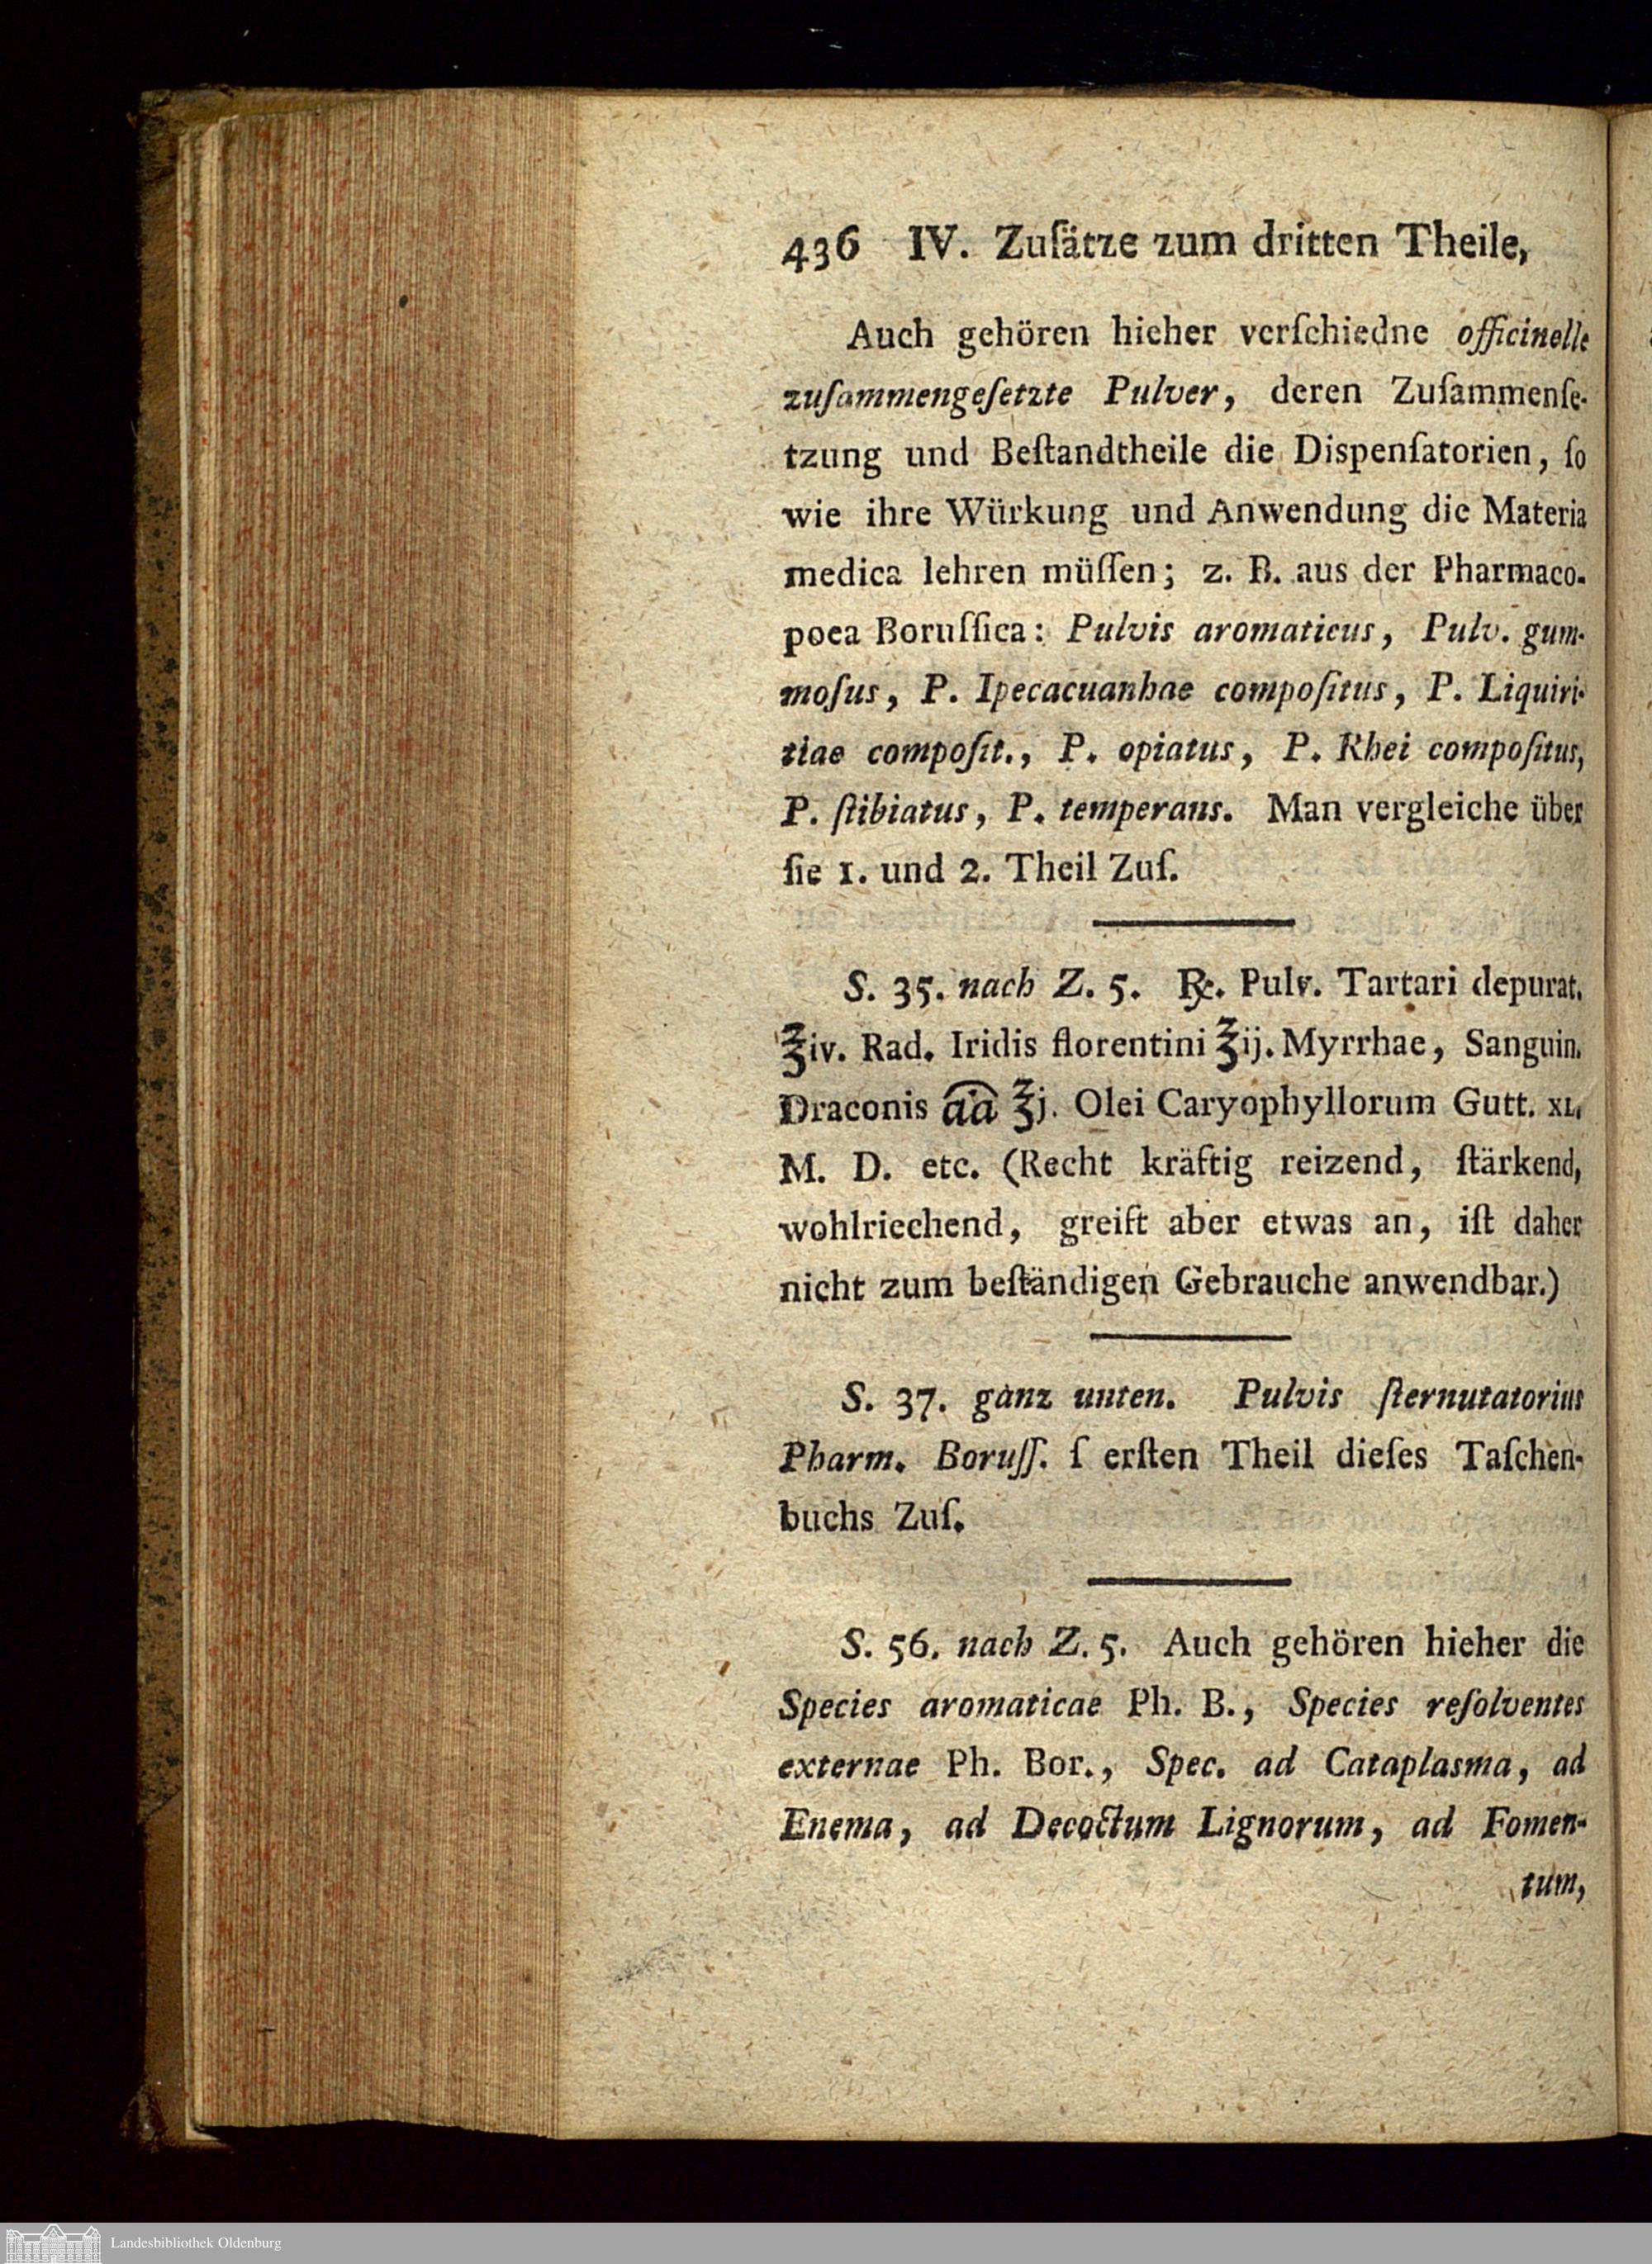 436 IV. Zuſätze zum dritten Theile,
Auch gehören hieher verſchiedne officinelle
zuſammengeſetzte Pulver, deren Zuſammenſe-
tzung und Beſtandtheile die Dispenſatorien, ſo
wie ihre Würkung und Anwendung die Materia
medica lehren müſſen; z. B. aus der Pharmaco-
poea Boruſſica: Pulvis aromaticus, Pulv. gum-
moſus, P. Ipecacuanhae compoſitus, P. Liquiri-
tiae compoſit., P. opiatus, P. Rhei compoſitus,
P. ſtibiatus, P. temperans. Man vergleiche über
ſie 1. und 2. Theil Zuſ.
S. 35. nach Z. 5. ℞. Pulv. Tartari depurat.
℥iv. Rad. Iridis florentini ℥ij. Myrrhae, Sanguin.
Draconis āā ℥j. Olei Caryophyllorum Gutt. XL.
M. D. etc. (Recht kräftig reizend, ſtärkend,
wohlriechend, greift aber etwas an, iſt daher
nicht zum beſtändigen Gebrauche anwendbar.)
S. 37. ganz unten. Pulvis ſternutatorius
Pharm. Boruſſ. ſ erſten Theil dieſes Taſchen-
buchs Zuſ.
S. 56. nach Z. 5. Auch gehören hieher die
Species aromaticae Ph. B., Species reſolventes
externae Ph. Bor., Spec. ad Cataplasma, ad
Enema, ad Decoctum Lignorum, ad Fomen-
tum,
Landesbibliothek Oldenburg